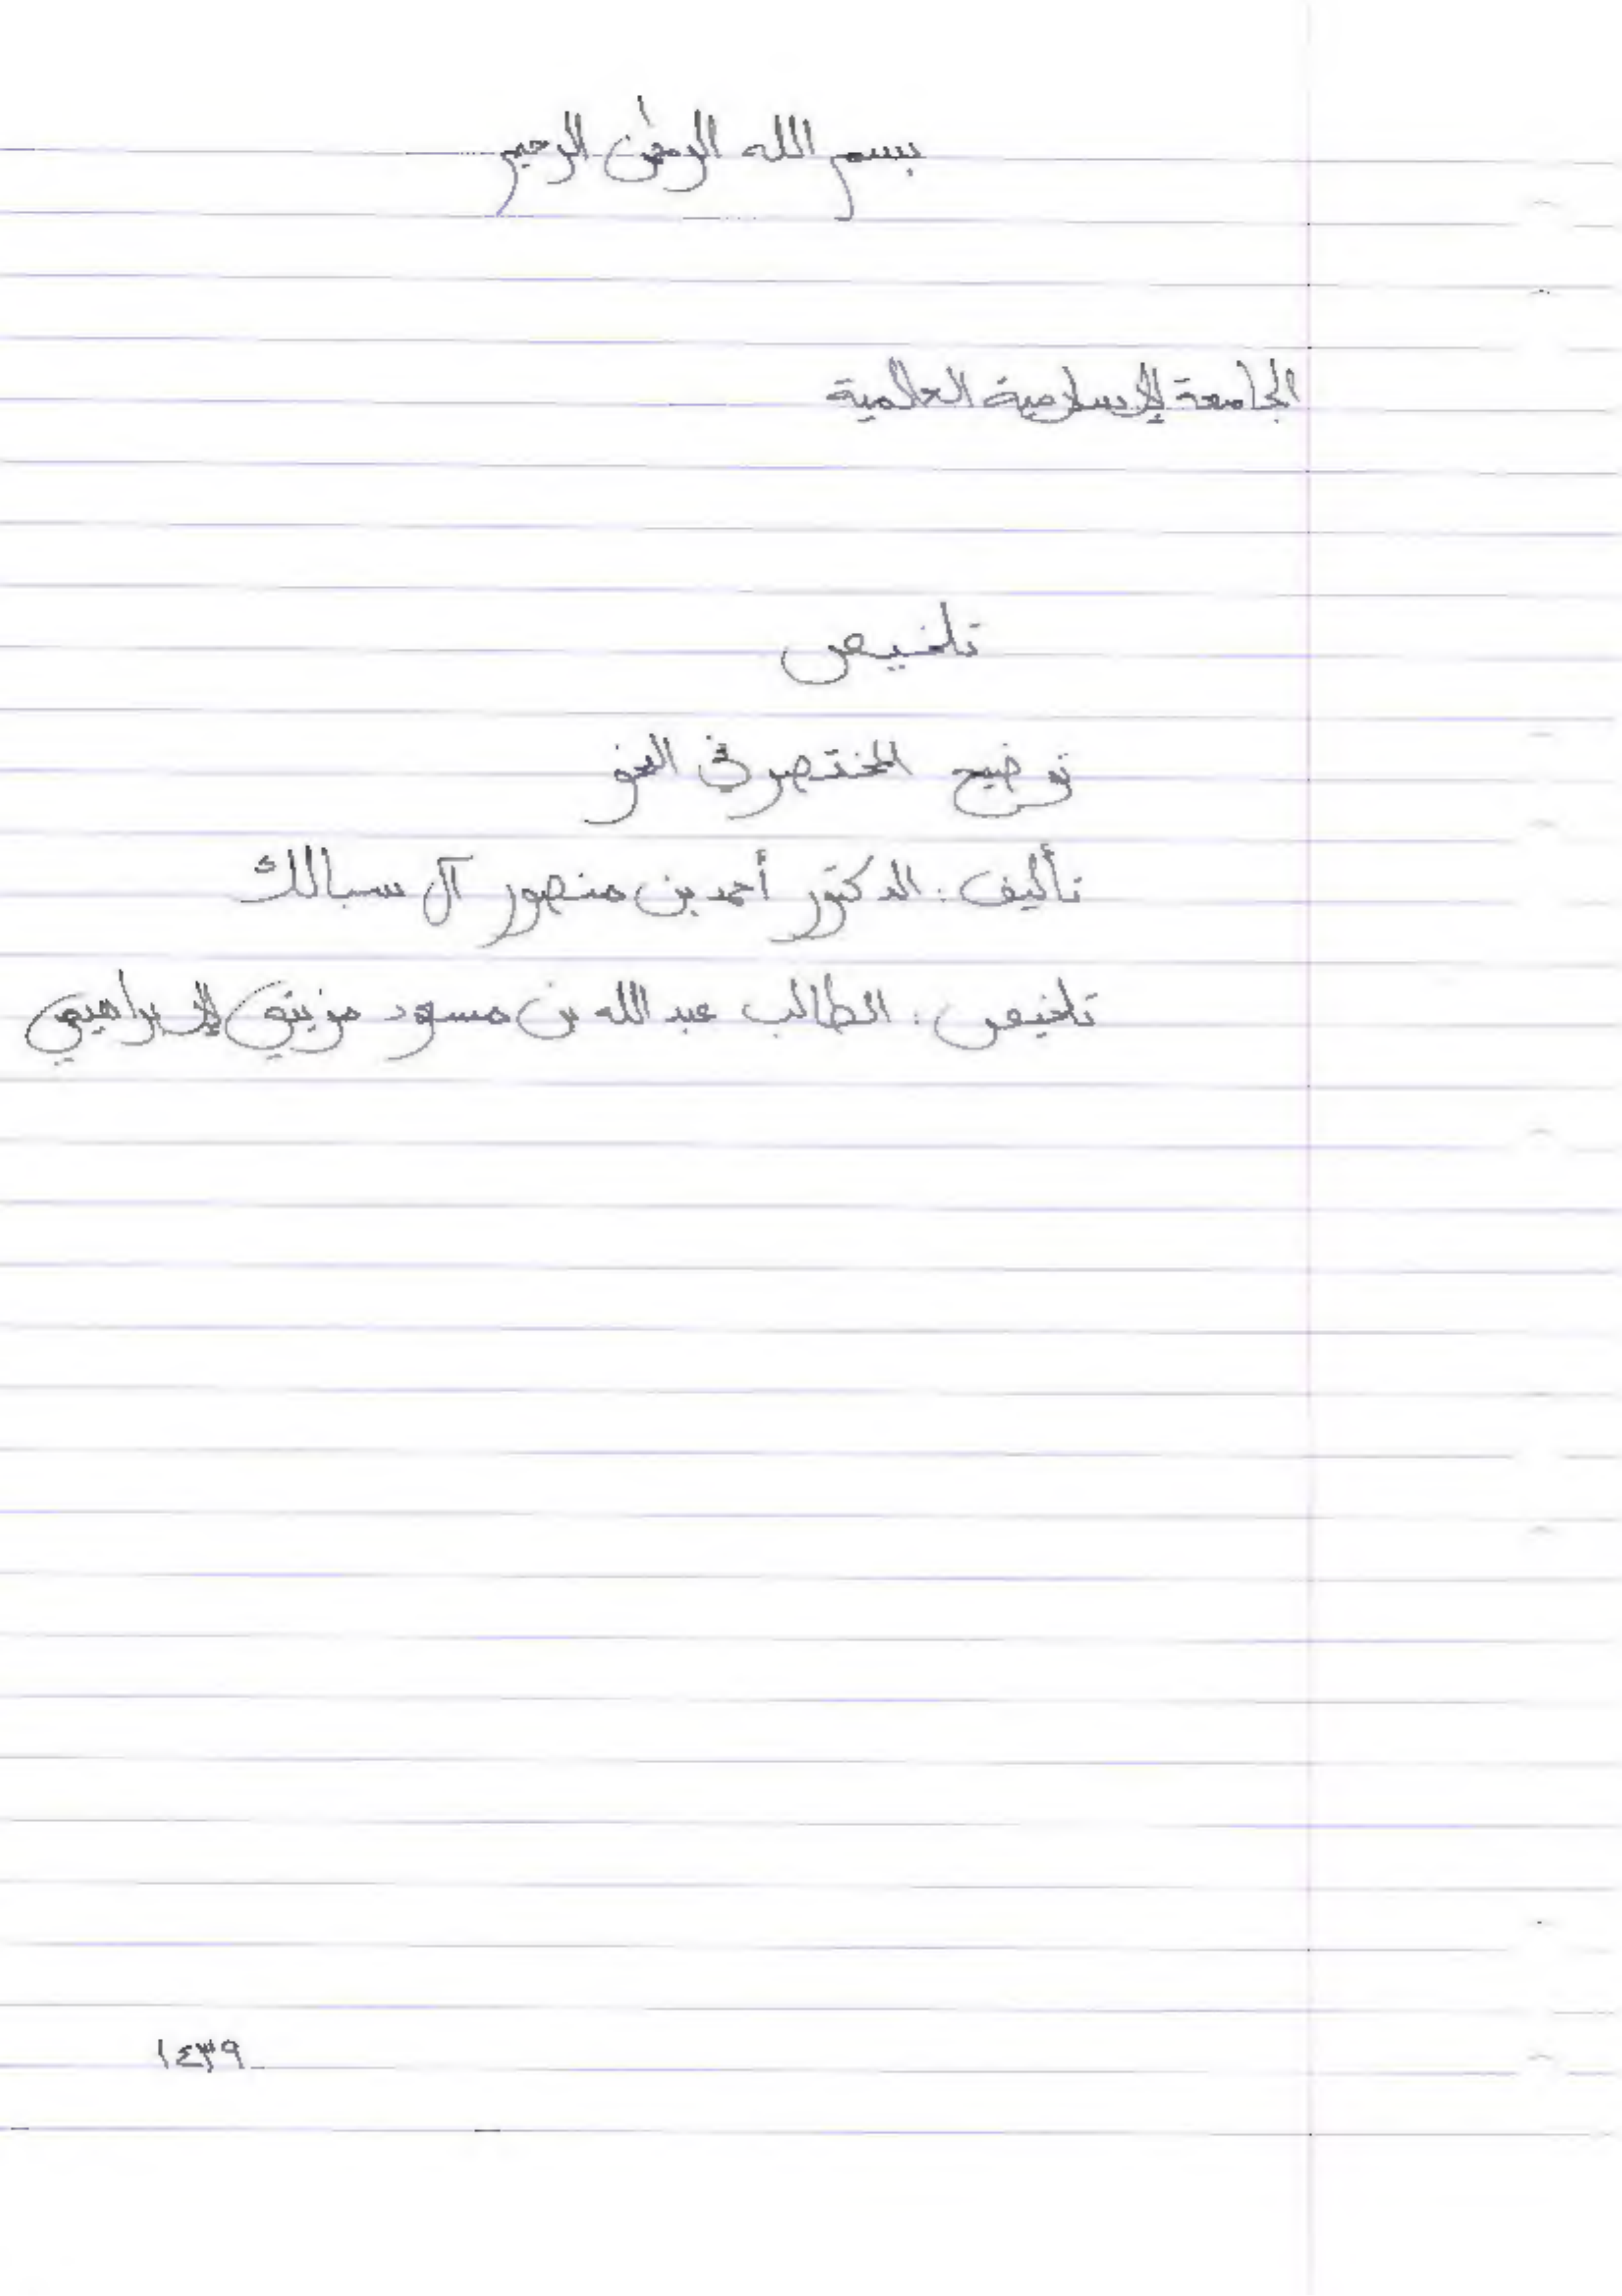 بسم الله الرحمٰن الرحيم
الجامعة الإسلامية العالمية
تلخيص
توضيح المختصر في النحو
تأليف: الدكتور أحمد بن منصور آل سبالك
تلخيص: الطالب عبد الله بن مسعود الإبراهيمي
١٤٣٩